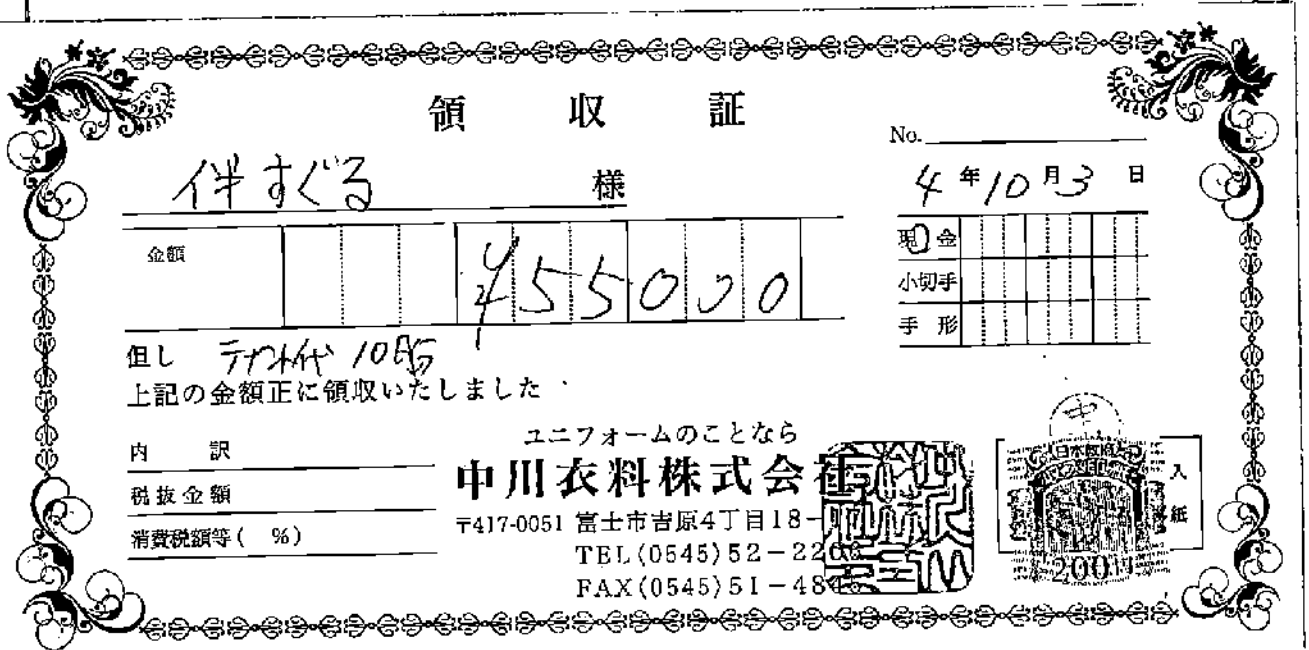 領 収 証
No.
伴すぐる 様
4 年 10 月 3 日
金額 ¥55000
現 金
小切手
手 形
但し テナント代 10
上記の金額正に領収いたしました
内 訳
税抜金額
消費税額等( %)
ユニフォームのことなら
中川衣料株式会社
〒417-0051 富士市吉原4丁目18-
TEL(0545)52-22
FAX(0545)51-48
中
日本政府
200
入
紙